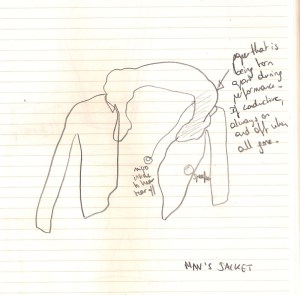 paper that is
being torn
apart during
performance.
If conductive,
always on
and off when
all gone.
micro
to hear
tear off
Speaker
MAN'S JACKET